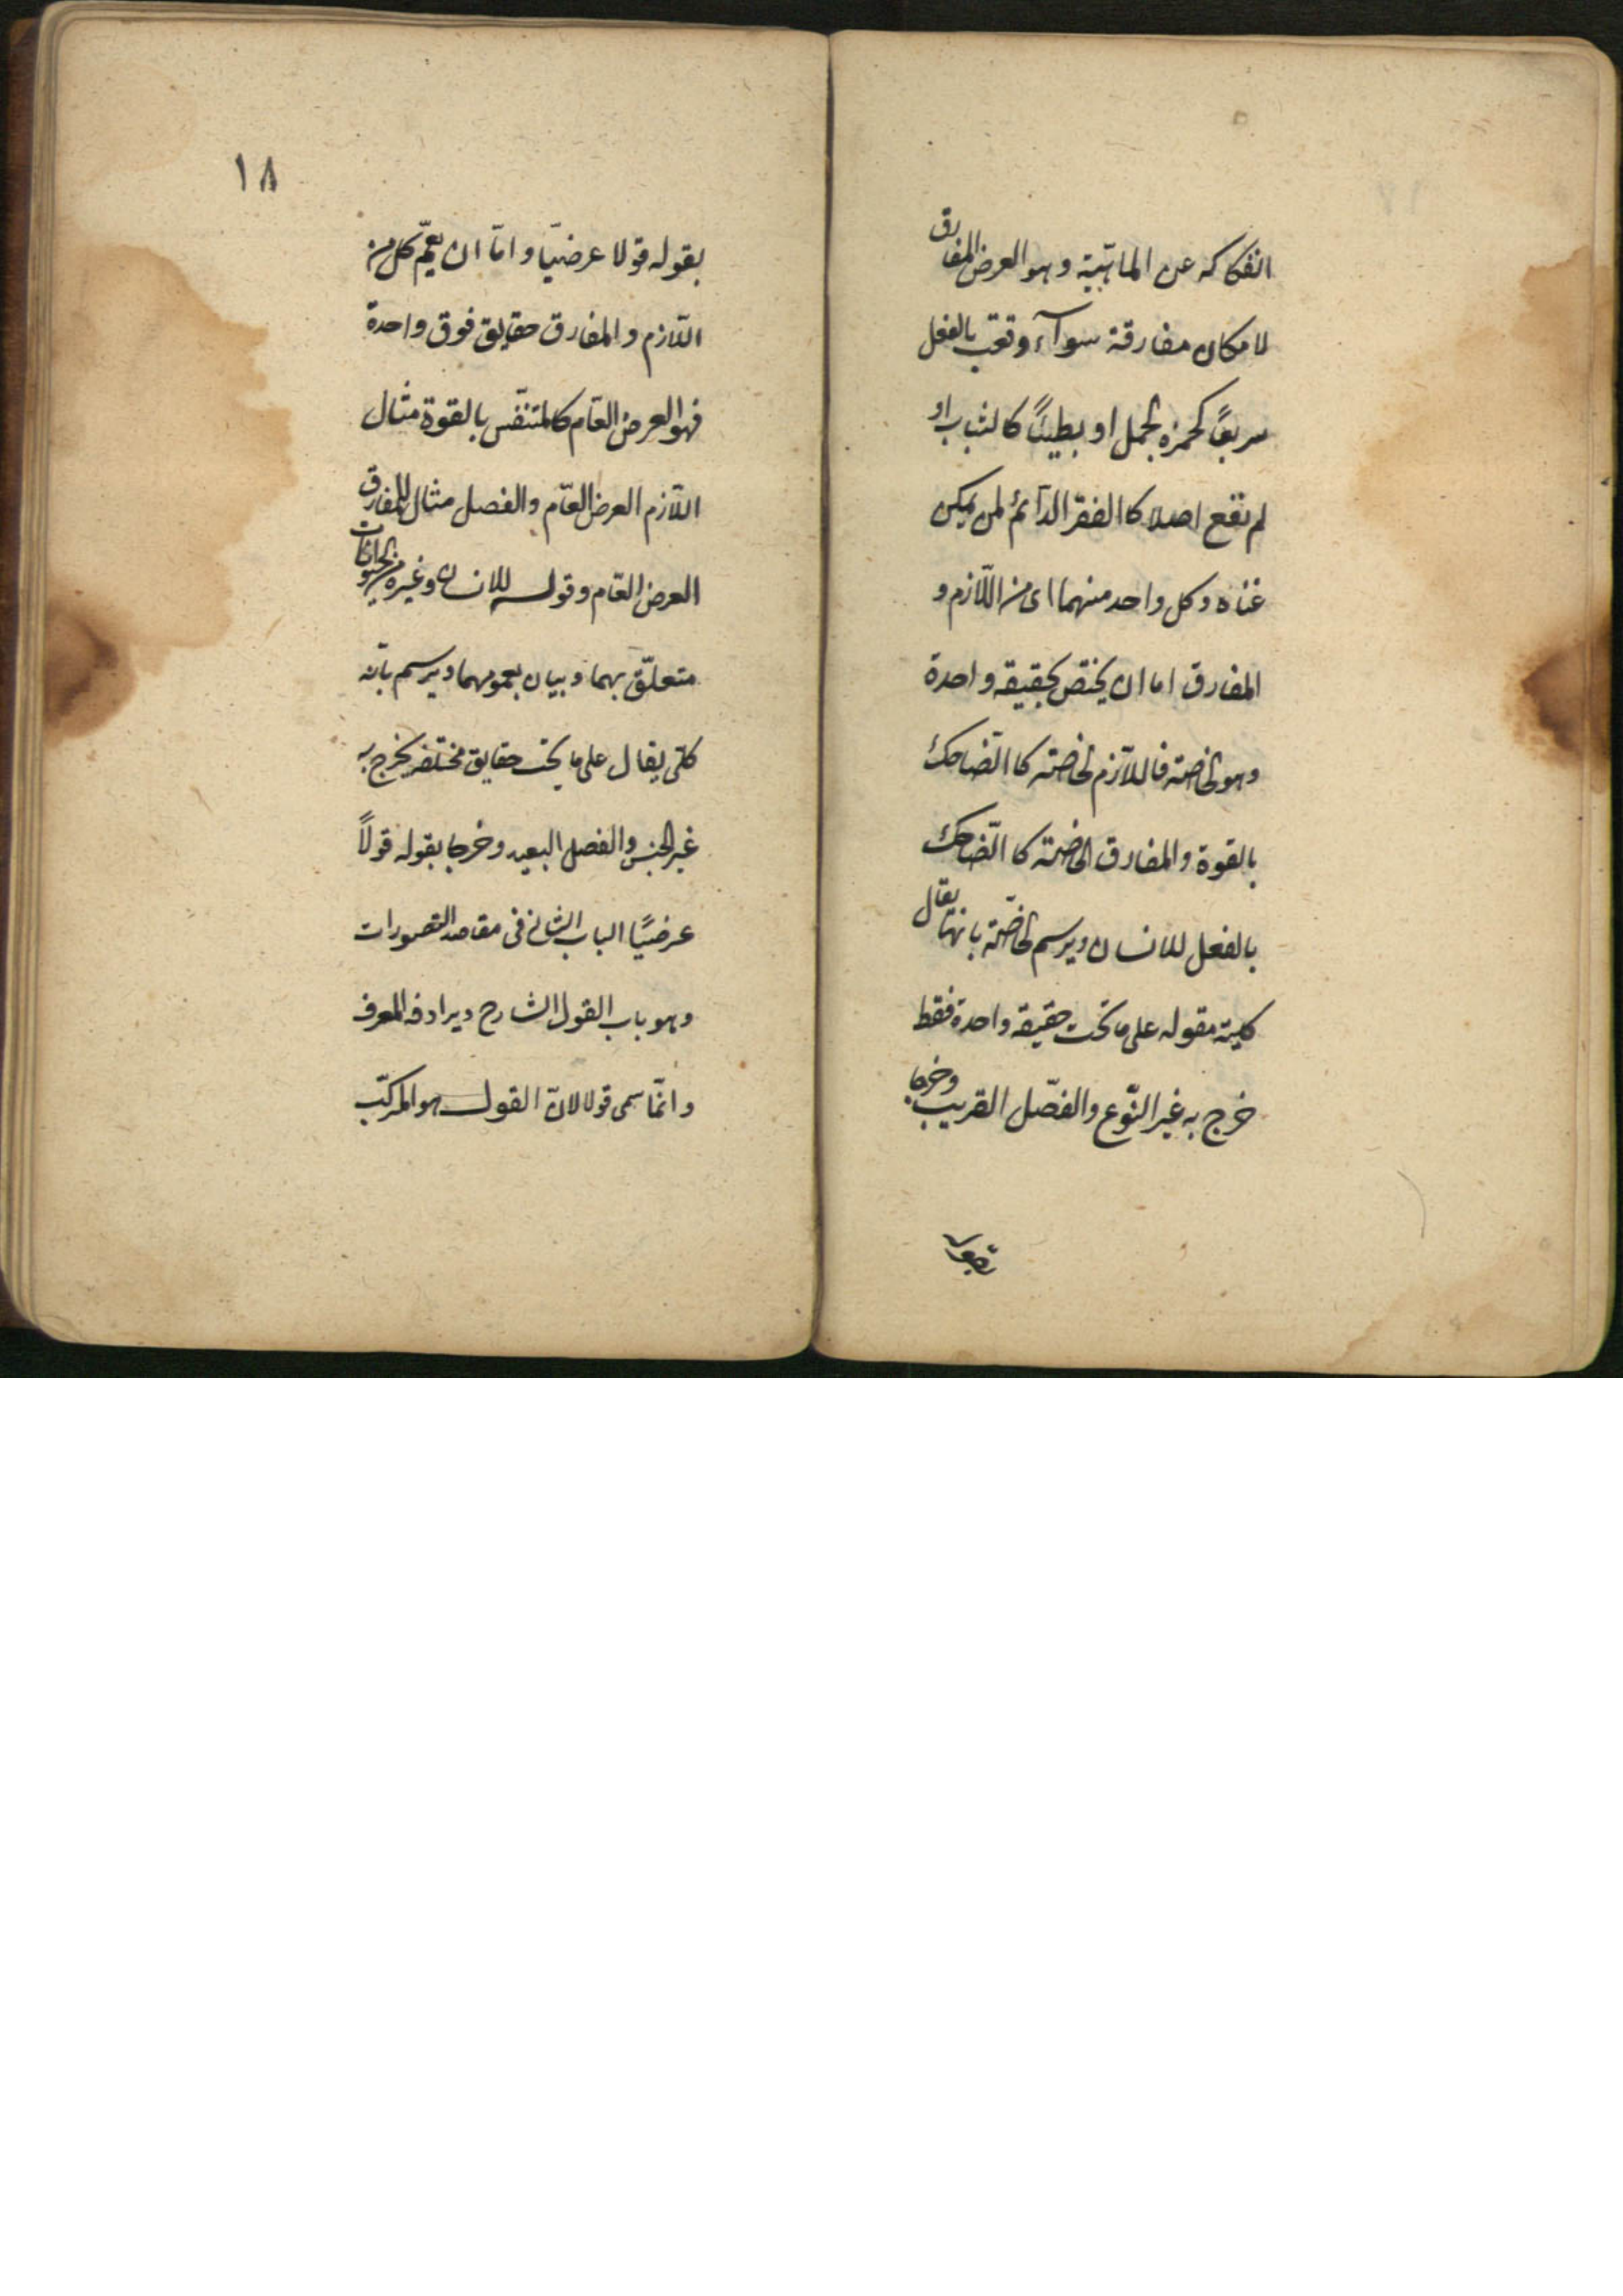 انفكاكه عن الماهيّية وهو العرض المفارق
لامكان مفارقة سوآء وقعت بالفعل
سريعًا كحمزه لجمل او بطيئًا كالشباب او
لم تقع اصلا كالفقر الدآئم لمن يمكن
غناه وكل واحد منهما اى من اللّازم و
المفارق اما ان يختص بحقيقه واحدة
وهو لخاصه فاللآزم لخاصته كا الضّاحك
بالقوة والمفارق الخاصّة كا الضّاحك
بالفعل للانسان ويرسم لخاصّة بانها يقال
كلية مقوله على ما تحت حقيقه واحدة فقط
خرج به غير النّوع والفصّل القريب وخرجا
١٨
بقوله قولا عرضيّا و امّا ان يعمّ كل من
اللّازم والمفارق حقايق فوق واحدة
فهو العرض العّام كالمتنفّس بالقوة مثال
اللّازم العرض العّام والفصل مثال للمفارق
العرض العّام وقوله للانسان وغيره من الحيوانات
متعلّق بهما وبيان بعمومهما ويرسم بانّه
كلّى يقال على ما تحت حقايق مختلفه يخرج به
غير الجنس والفصل البعيد وخرجا بقوله قولاً
عرضيًا الباب الثانى فى مقاصد التصورات
وهو باب القول الشارح ويرادفه المعرف
وانمّا سمى قولا لانّ القول هو المركّب